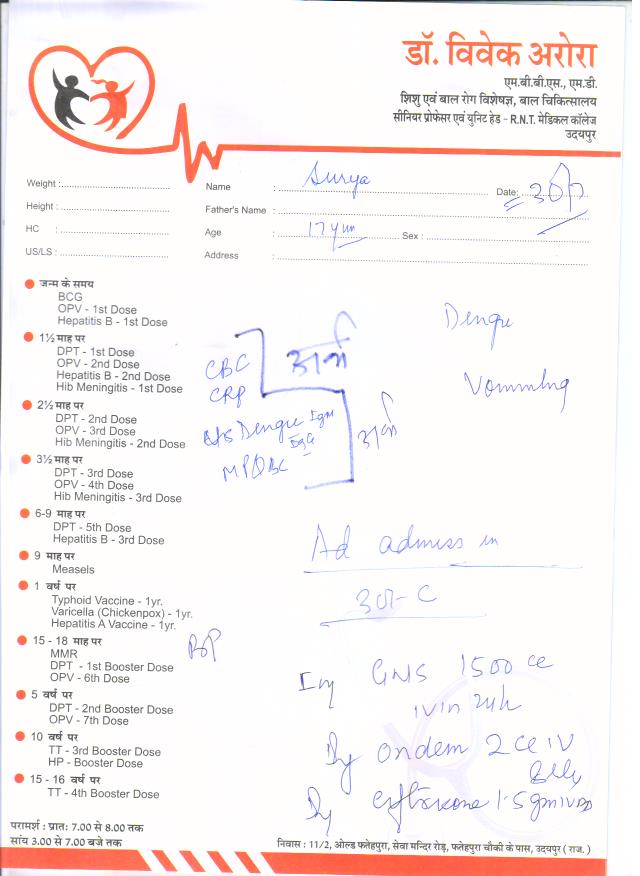 डॉ. विवेक अरोरा
एम.बी.बी.एस., एम.डी.
शिशु एवं बाल रोग विशेषज्ञ, बाल चिकित्सालय
सीनियर प्रोफेसर एवं यूनिट हेड - R.N.T. मेडिकल कॉलेज
उदयपुर
Weight : Name : Surya Date:
Height : Father's Name :
HC : Age : 17 Sex :
US/LS : Address :
जन्म के समय
BCG
OPV - 1st Dose
Hepatitis B - 1st Dose
1½ माह पर
DPT - 1st Dose
OPV - 2nd Dose
Hepatitis B - 2nd Dose
Hib Meningitis - 1st Dose
2½ माह पर
DPT - 2nd Dose
OPV - 3rd Dose
Hib Meningitis - 2nd Dose
3½ माह पर
DPT - 3rd Dose
OPV - 4th Dose
Hib Meningitis - 3rd Dose
6-9 माह पर
DPT - 5th Dose
Hepatitis B - 3rd Dose
9 माह पर
Measels
1 वर्ष पर
Typhoid Vaccine - 1yr.
Varicella (Chickenpox) - 1yr.
Hepatitis A Vaccine - 1yr.
15 - 18 माह पर
MMR
DPT - 1st Booster Dose
OPV - 6th Dose
5 वर्ष पर
DPT - 2nd Booster Dose
OPV - 7th Dose
10 वर्ष पर
TT - 3rd Booster Dose
HP - Booster Dose
15 - 16 वर्ष पर
TT - 4th Booster Dose
CBC
CRP
Dengue IgM
IgG
BP
Dengue
Vomming
Ad admiss in
301-C
Inj GNS 1500 cc
IV in 24h
Inj Ondem 2 cc IV
Inj 1.5 gm IV BD
परामर्श : प्रातः 7.00 से 8.00 तक
सांय 3.00 से 7.00 बजे तक
निवास : 11/2, ओल्ड फतेहपुरा, सेवा मन्दिर रोड़, फतेहपुरा चौकी के पास, उदयपुर ( राज. )